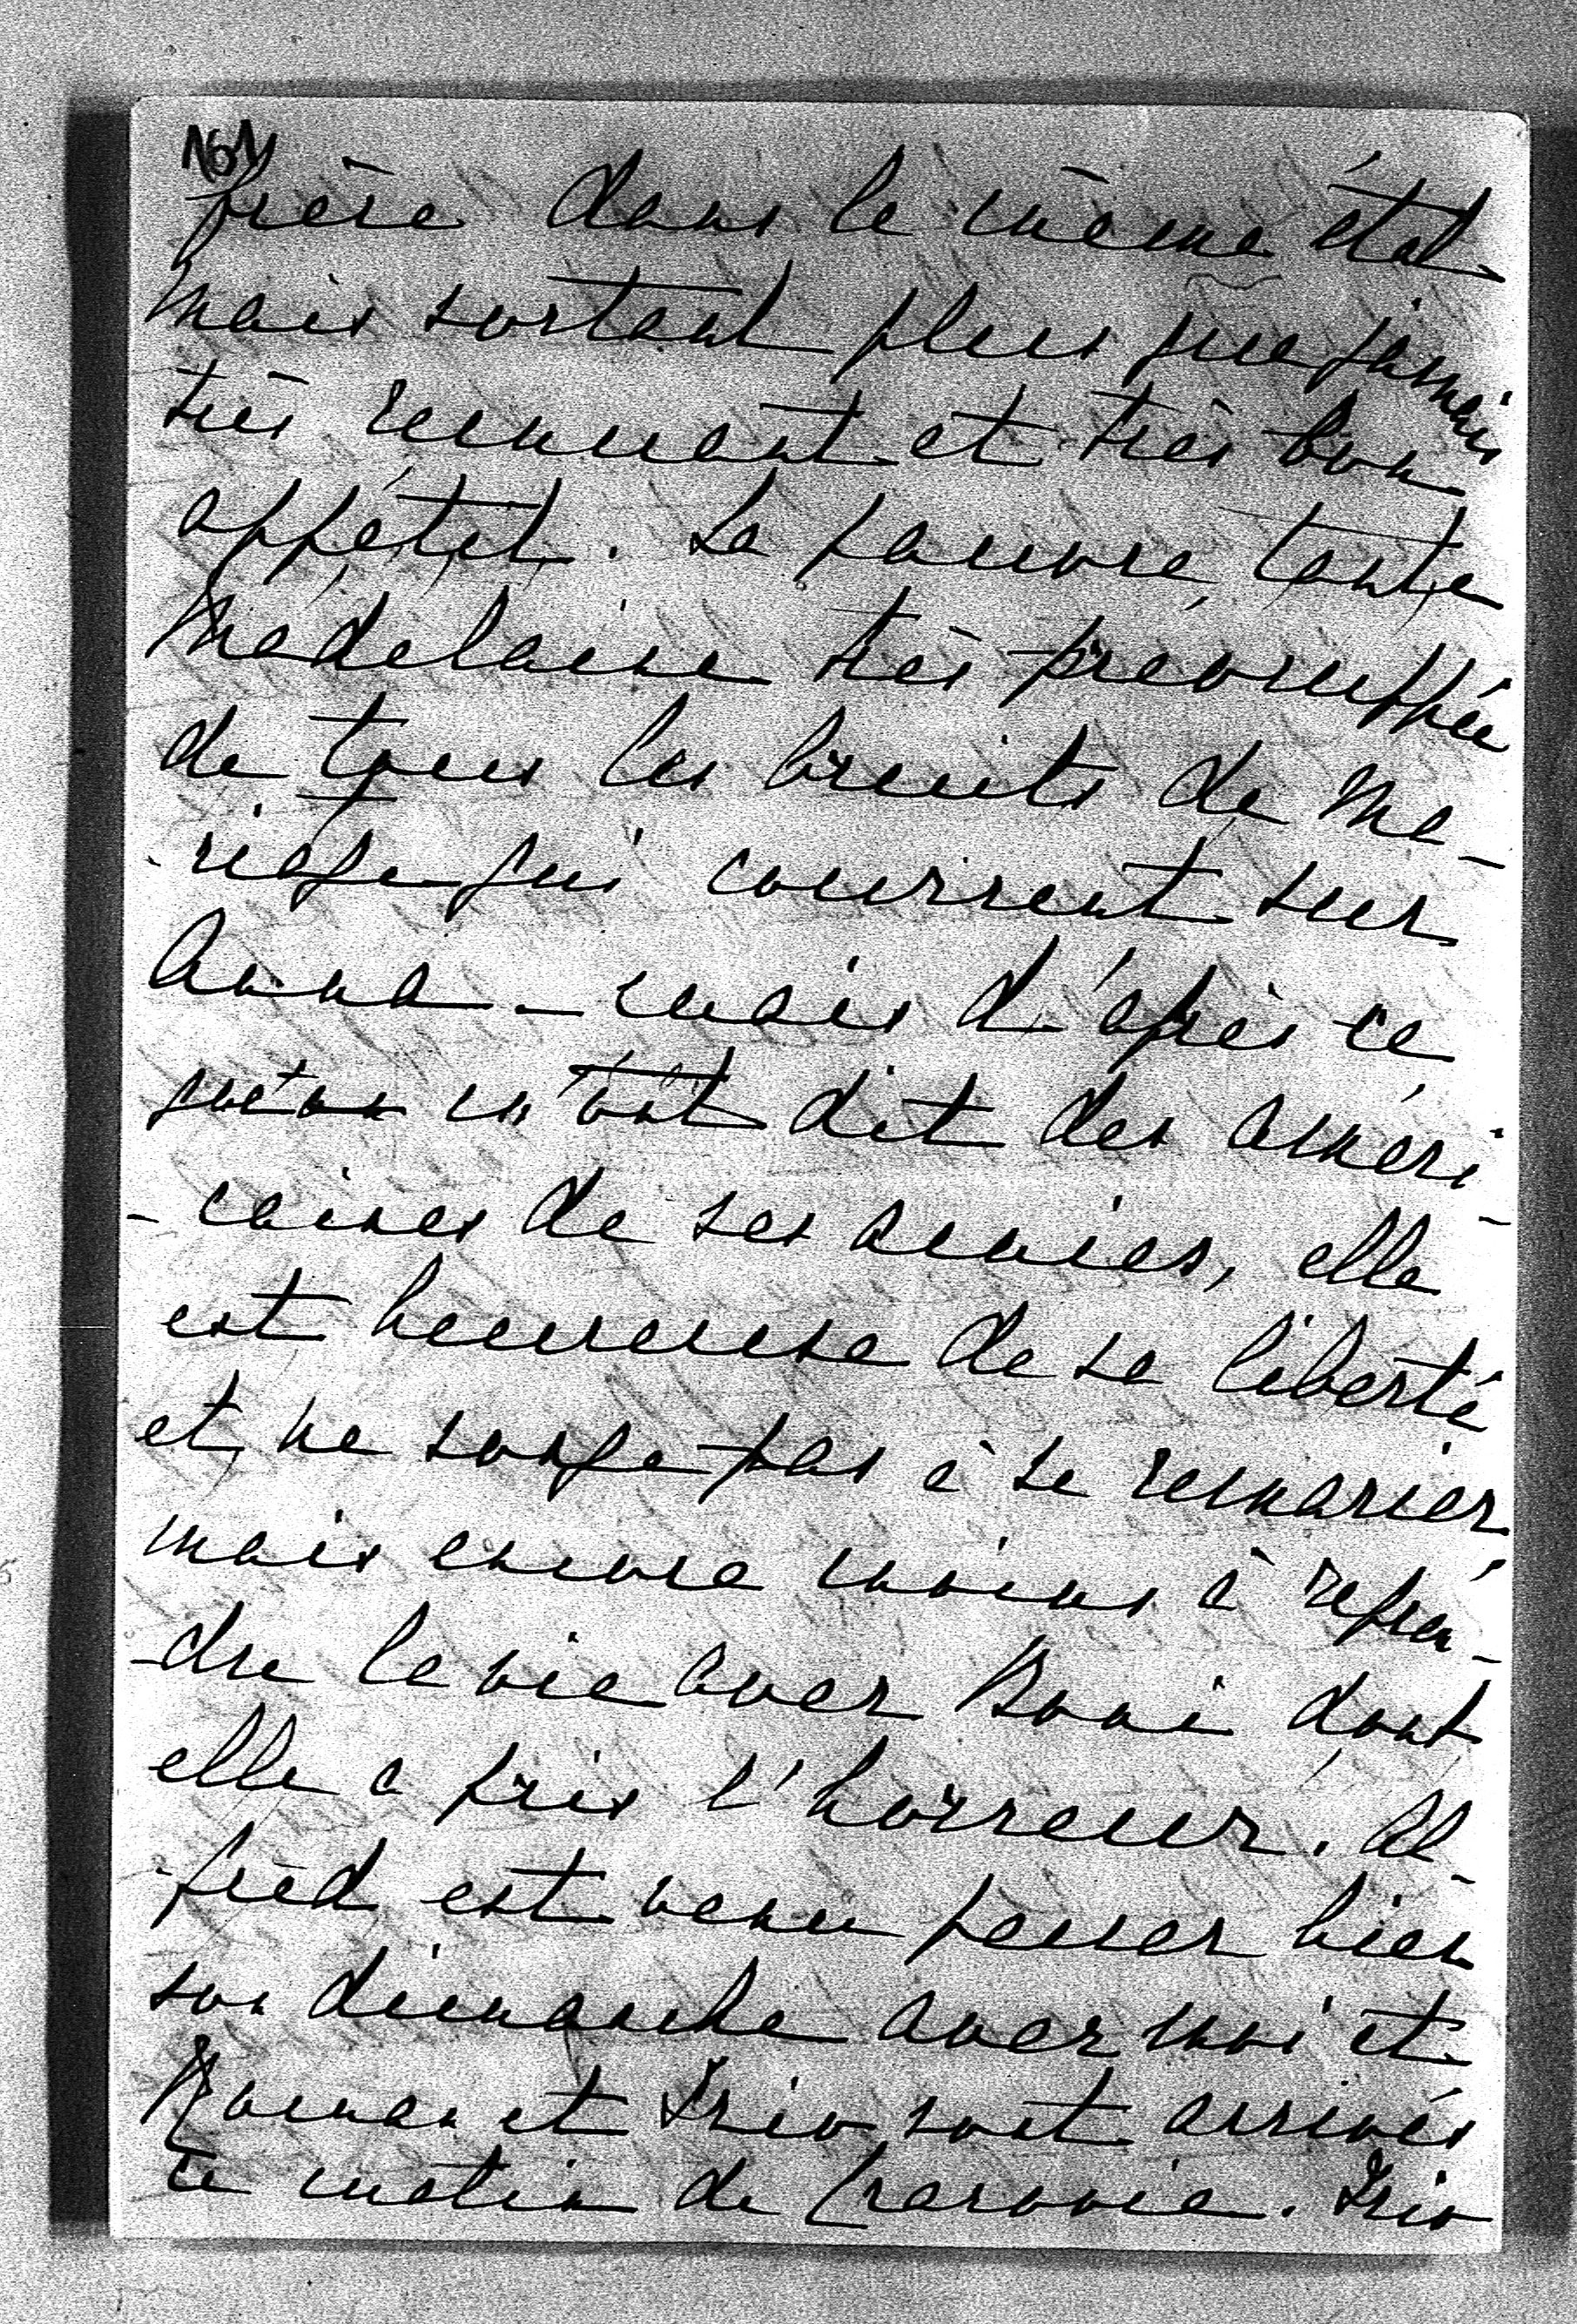 161
frère dans le même état
mais sortant plus que jamais
très remuant et très bon
appétit. La pauvre tante
Madelaine très préoccuppée
de tous les bruits de ma-
-riage qui courrent sur
Anna - mais d'après ce
qu'on m'ont dit des améri-
-caines de ses amies, elle
est heureuse de sa liberté
et ne songe pas à se remarier
mais encore moins à repren-
-dre la vie avec Boni dont
elle a pris l'horreur. Al-
-fred est venu passer hier
son dimanche avec moi et
Roman et sont arrivés
ce matin de Cracovie.